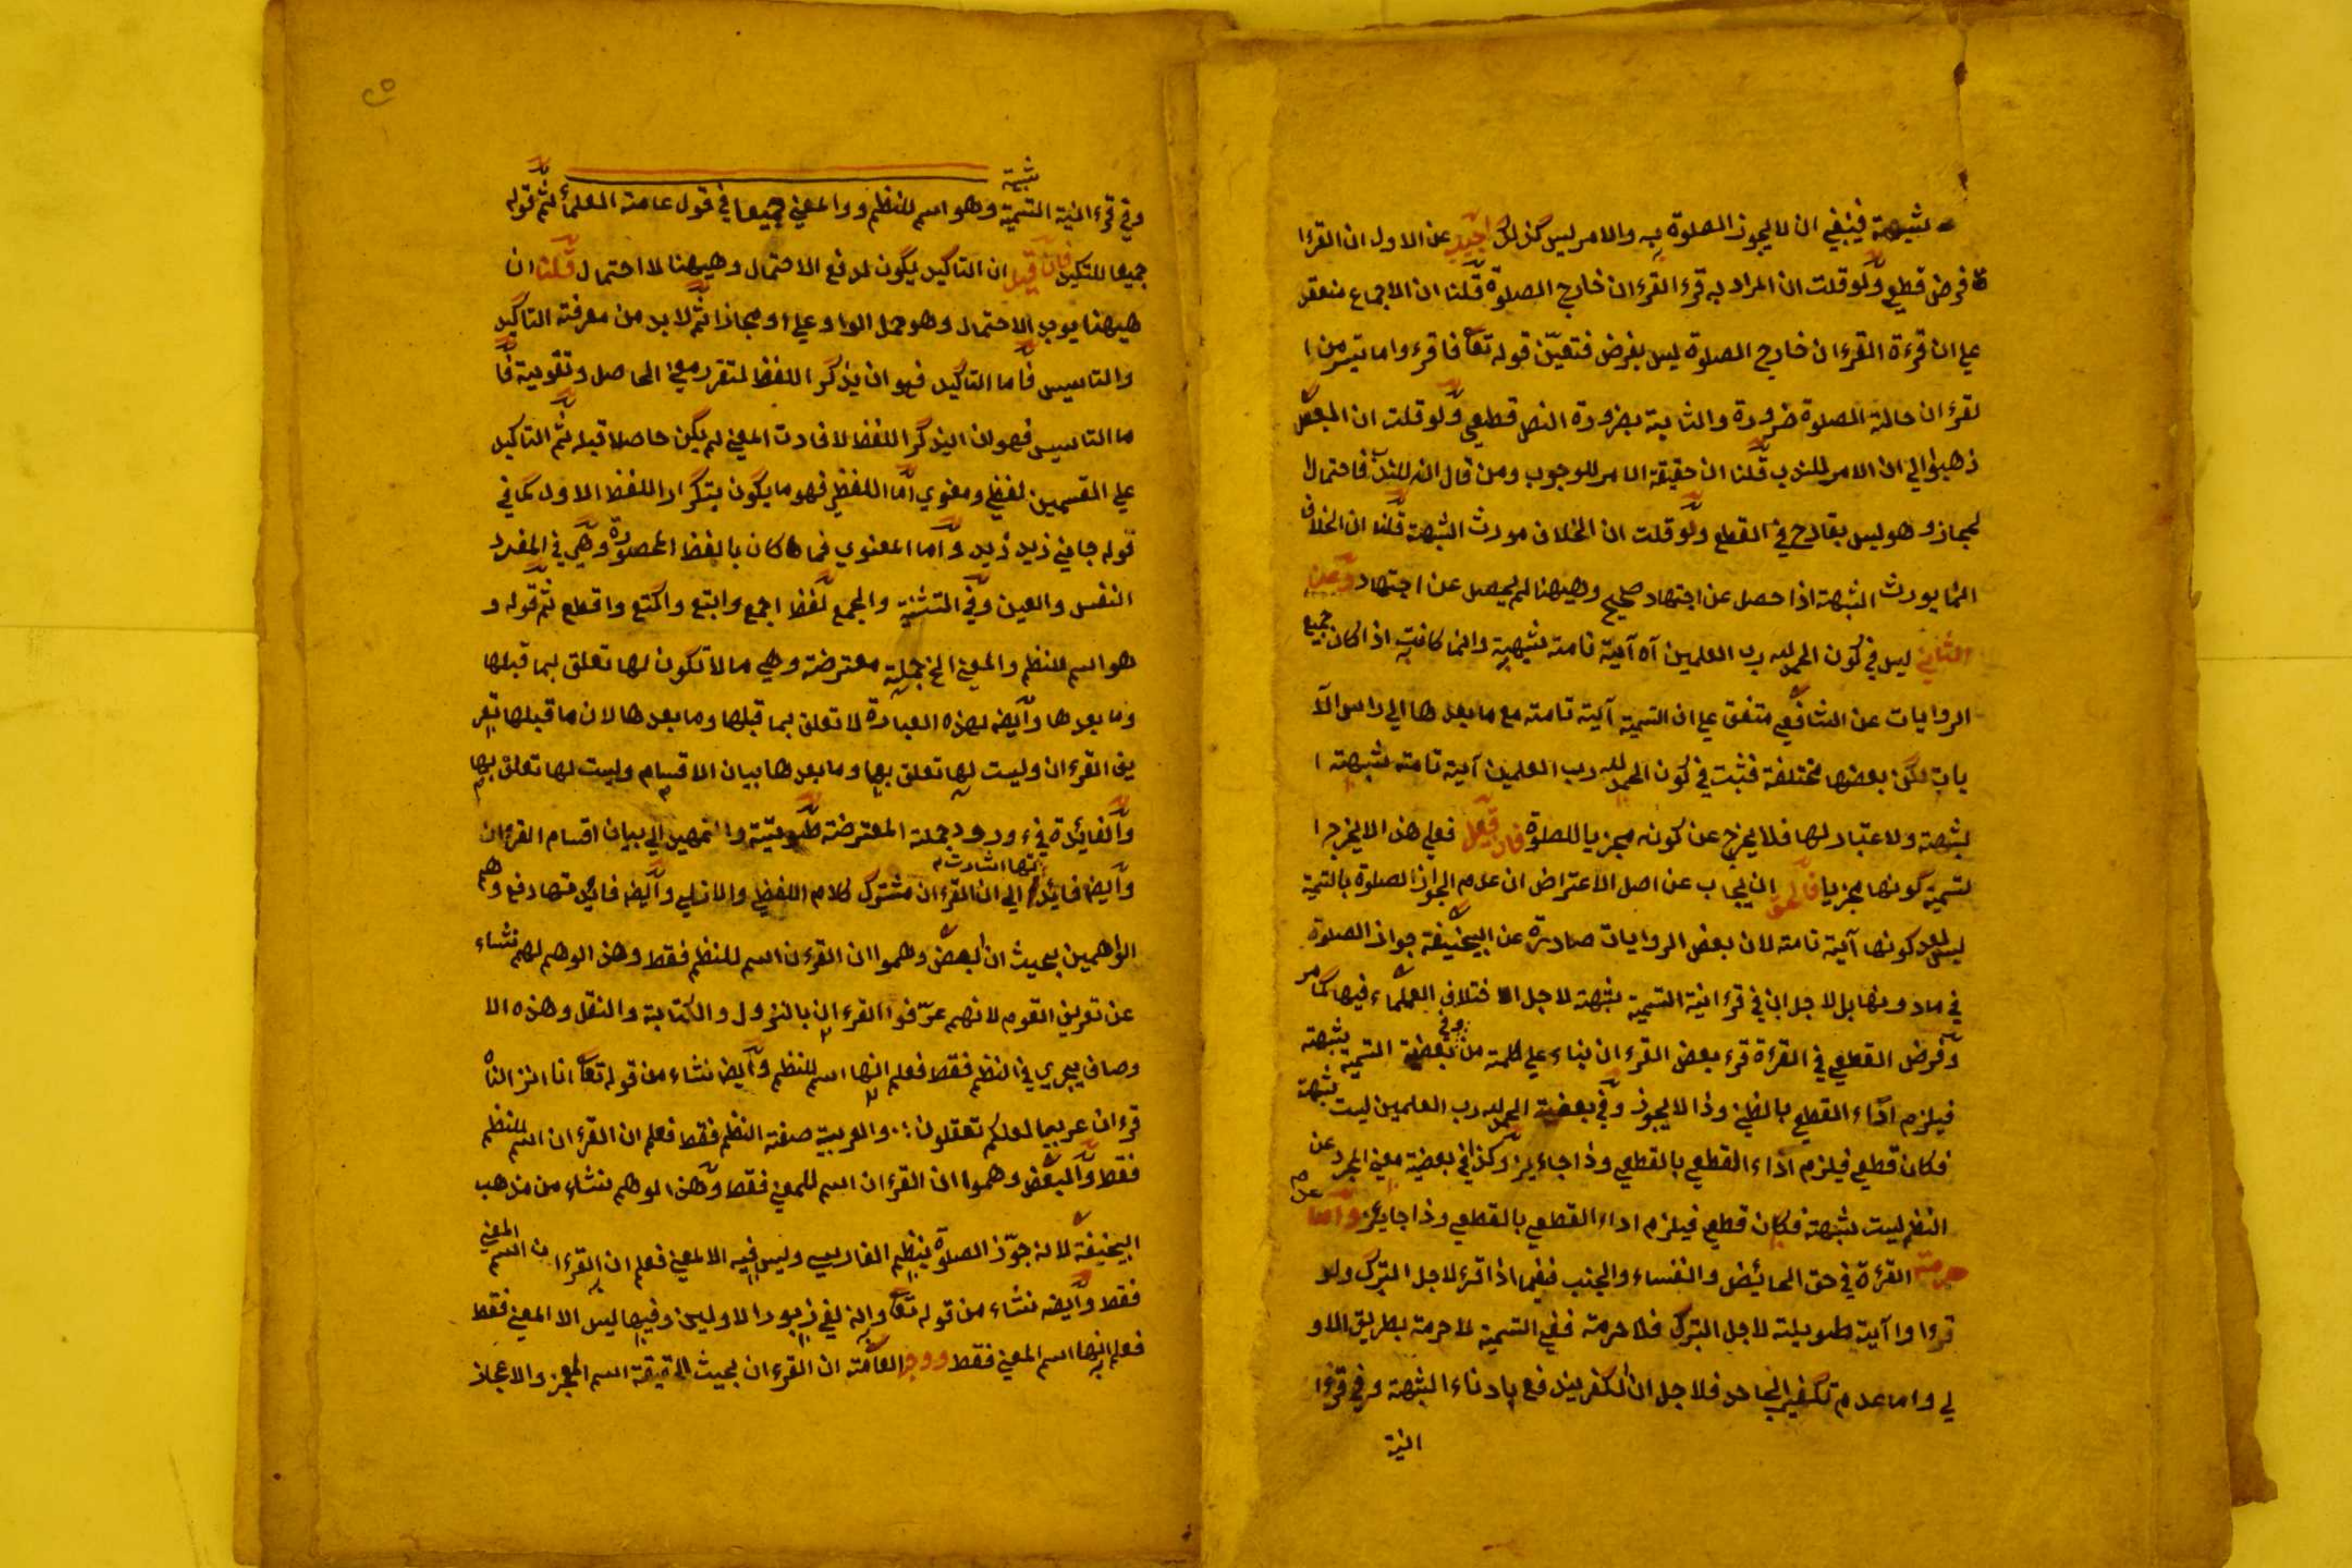 شبهة فينبغي ان لا يجوز الصلوة به والامر ليس كذلك اجيب عن الاول ان القرءا
ة فرض قطعي ولو قلت ان المراد به قرء القرءان خارج الصلوة قلنا ان الاجماع منعقد
علي ان قرءة القرءان خارج الصلوة ليس بفرض فتعيّن قوله تعا فاقرءوا ما تيسر من ا
لقرءان حالة الصلوة ضرورة والثابتة بضرورة النص قطعي ولو قلت ان البعض
ذهبوا الي ان الامر للندب قلنا ان حقيقة الامر للوجوب ومن قال انه للندب فاحتمال
لمجاز وهو ليس بقادح في القطع ولو قلت ان الخلاف مورث الشبهة قلنا ان الخلاف
انما يورث الشبهة اذا حصل عن اجتهاد صحيح وهيهنا لم يحصل عن اجتهاد وعن
الثاني ليس في كون الحمد لله رب العلمين آه آية تامة شبهة وانما كانت اذا كان جميع
الروايات عن الشافعي متفق علي ان التسمية آية تامة مع ما بعدها الي راس الآ
يات لكن بعضها مختلفة فثبت في كون الحمد لله رب العلمين آية تامة شبهة ا
لشبهة ولا عتبار لها فلا يخرج عن كونه مجزيا للصلوة فان قيل فعلي هذا لا يخرج ا
لتسمية كونها مجزيا فالحق ان يجاب عن اصل الاعتراض ان عدم الجواز الصلوة بالتسمية
ليس لعدم كونها آية تامة لان بعض الروايات صادرة عن ابيحنيفة جواز الصلوة
في مادونها بل لاجل ان في قرءانية التسمية شبهة لاجل اختلاف العلماء فيها كما مر
وفرض القطعي في القرءة قرء بعض القرءان بناء علي كلمة من وفي بعضية التسمية شبهة
فيلزم آداء القطعي بالظني وذا لا يجوز وفي بعضية الحمد لله رب العلمين ليت شبهة
فكان قطعي فيلزم اداء القطعي بالقطعي وذا جاءيز وكذا في بعضية معني المجرد عن
النظم ليت شبهة فكان قطعي فيلزم اداء القطعي بالقطعي وذا جايز واما عدم
حرمة القرءة في حق الحائض والنفساء والجنب ففيما اذا قرء لاجل التبرك ولو
قرءا وا آية طويلة لاجل التبرك فلا حرمة ففي التسمية لا حرمة بطريق الاو
لي واما عدم تكفير الجاحد فلاجل ان الكفر يندفع بادناء الشبهة وفي قرءا
انية
٢٥
وفي قرءانية التسمية شبهة وهو اسم للنظم والمعني جميعا في قول عامة العلماء ثم قوله
جميعا للتكيد فان قيل ان التاكيد يكون لدفع الاحتمال وهيهنا لا احتمال قلنا ان
هيهنا يوجد الاحتمال وهو حمل الواو علي او مجازا ثم لابد من معرفة التاكيد
والتاسيس فاما التاكيد فهو ان يذكر اللفظ لتقرر معني الحاصل وتقوية فا
ما التاسيس فهو ان اليذكر اللفظ لافادت المعني لم يكن حاصلا قبله ثم التاكيد
علي القسمين لفظي ومعنوي اما اللفظي فهو ما يكون بتكرار اللفظ الاول كما في
قوله جاءني زيد زيد واما المعنوي فما كان بالفظ المحصورة وهي في المفرد
النفس والعين وفي التثنية والجمع لفظ اجمع وابتع واكتع واقطع ثم قوله و
هو اسم للنظم والمعني الخ جملة معترضة وهي مالا تكون لها تعلق بما قبلها
وما بعدها وايضه لهذه العبارة لا تعلق بما قبلها وما بعدها لان ما قبلها تعر
يف القرءان وليست لها تعلق بها وما بعدها بيان الاقسام وليست لها تعلق بها
والفائدة في ورود جملة المعترضة طويتية والتمهيد الي بيان اقسام القرءان
وايضه فايدتها اشارت الي ان القرءان مشترك كلام اللفظي والازلي وايضه فايدتها دفع وهم
الواهمين بحيث ان البعض وهموا ان القرءن اسم للنظم فقط وهذ الوهم لهم نشاء
عن تعريف القوم لانهم عرّفوا القرءان بالنزول والكتابة والنقل وهذه الا
وصاف يجري في النظم فقط فعلم انها اسم للنظم وايضه نشاء من قوله تعا انا انزلناه
قرءان عربيا لعلكم تعقلون والعربية صفة النظم فقط فعلم ان القرءان اسم للنظم
فقط والبعض وهموا ان القرءان اسم للمعني فقط وهذ الوهم نشاء من مذهب
ابيحنيفة لانه جوّز الصلوة بنظم الفارسي وليس فيه الا المعني فعلم ان القرءان اسم المعني
فقط وايضه نشاء من قوله تعا وانه لفي زبور الاولين وفيها ليس الا المعني فقط
فعلم انها اسم المعني فقط ووجه العامة ان القرءان بحيث الحقيقة اسم المعجز والاعجاز